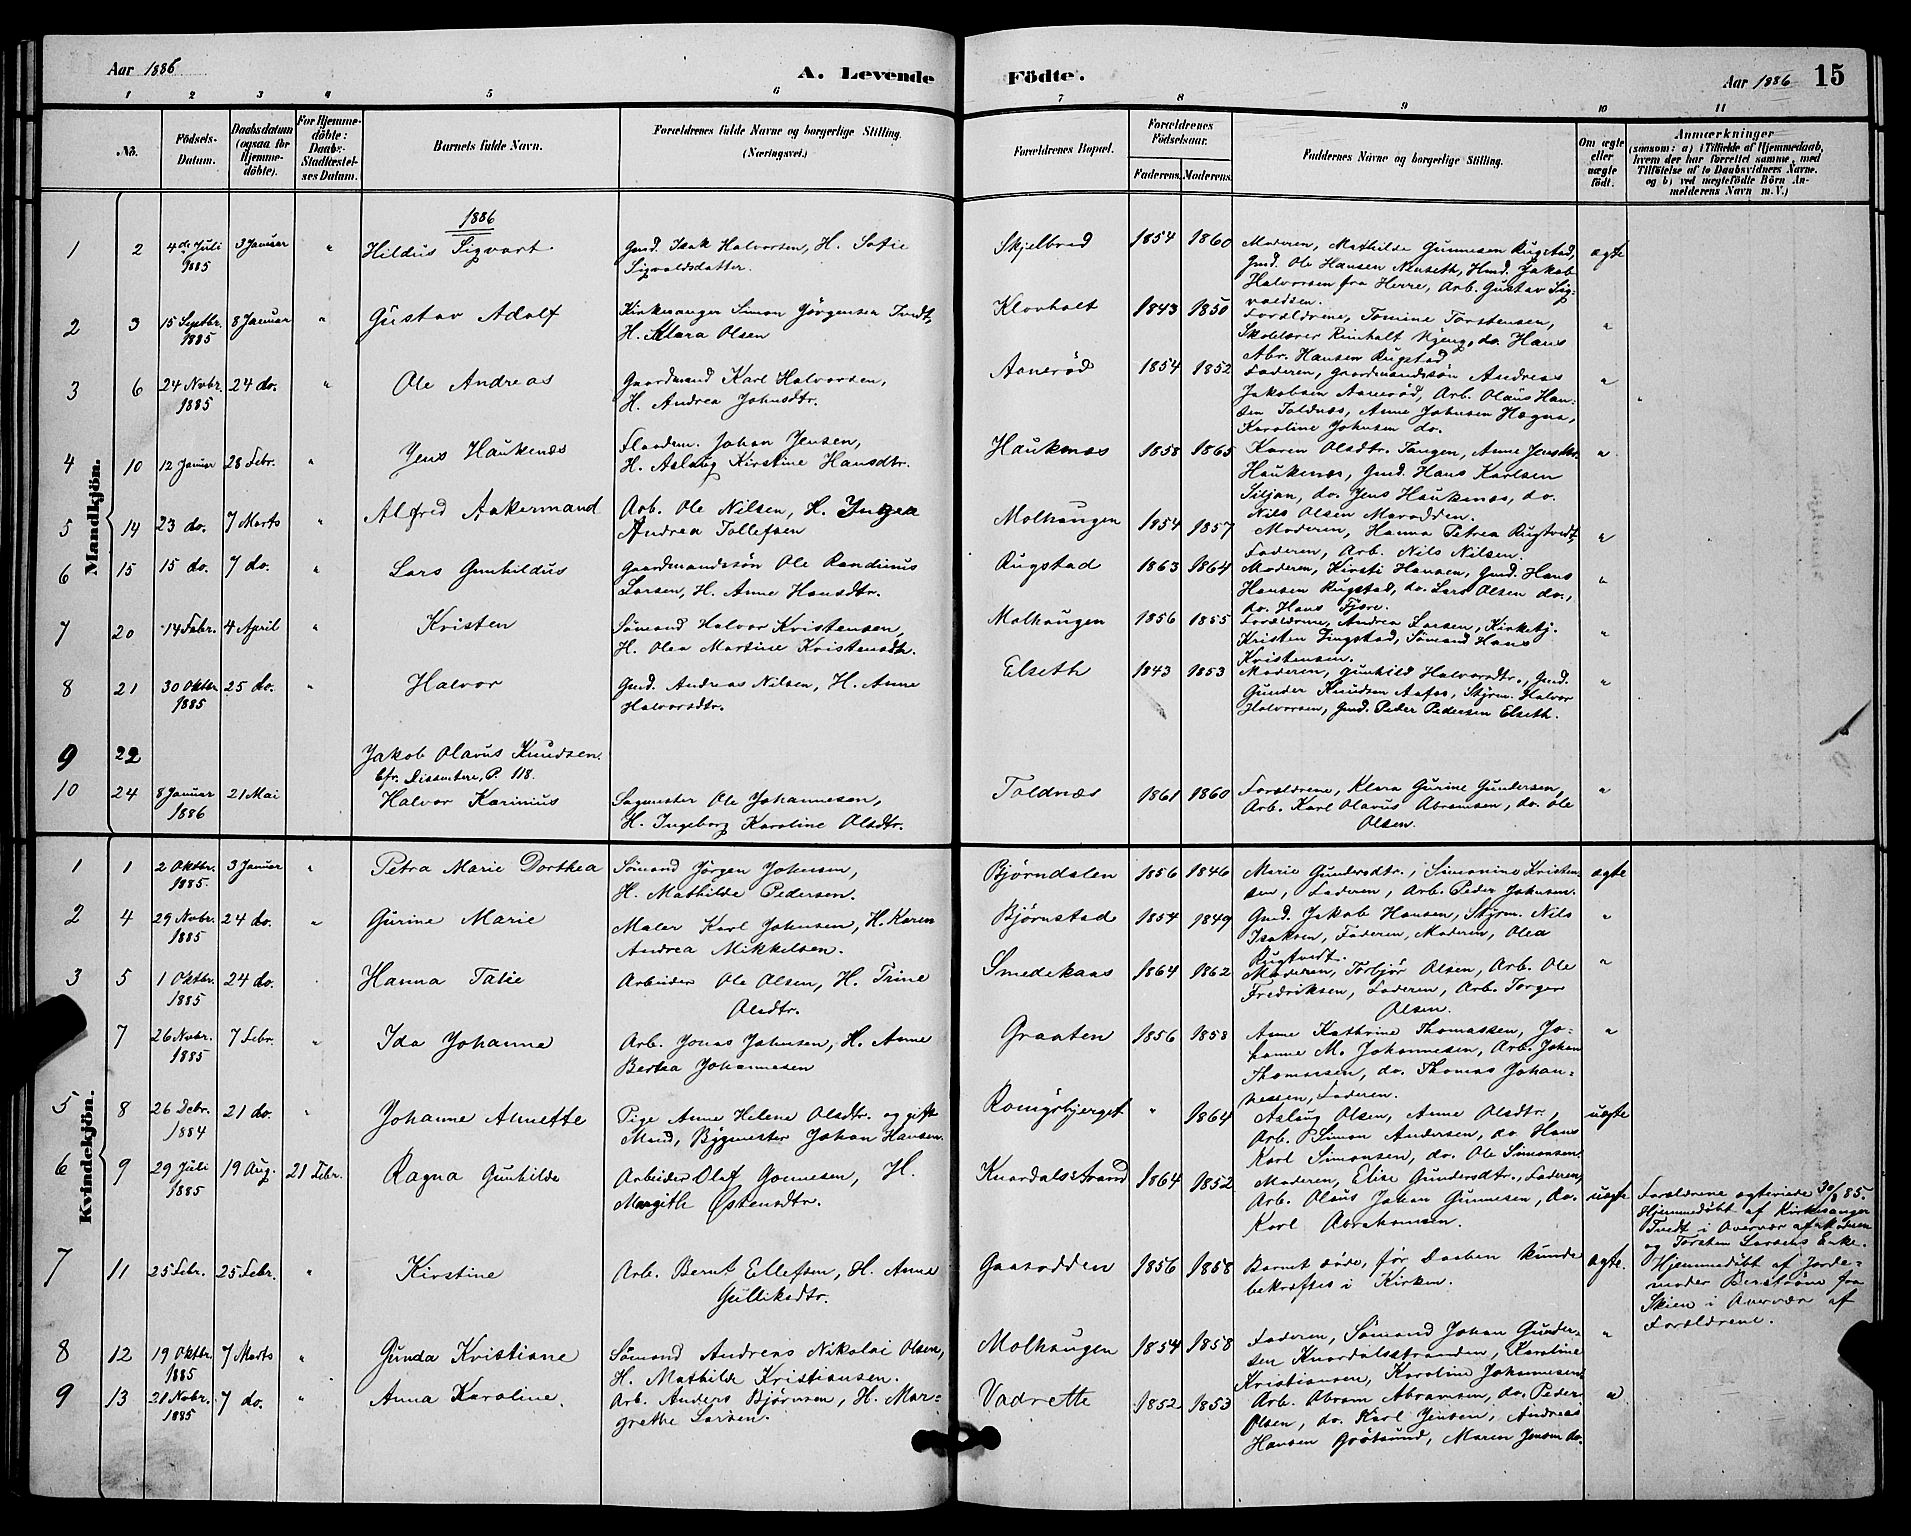 Aar 1886
A. Levende
Födte.
Aar 1886
15
1 2 3 4 5 6 7 8 9 10 11
No.
Födsels-
Datum.
Daabsdatum
(ogsaa for
Hjemme-
döbte).
For Hjemme-
döbte:
Daabs-
Stadfæstel-
ses Datum.
Barnets fulde Navn.
Forældrenes fulde Navne og borgerlige Stilling.
(Næringsvei.)
Forældrenes Bopæl.
Forældrenes
Födselsaar.
Faderens. Moderens.
Faddernes Navne og borgerlige Stilling.
Om ægte
eller
uægte
født.
Anmærkninger
(saasom: a) i Tilfælde af Hjemmedaab,
hvem der har forrettet samme, med
Tilføielse af to Daabsvidners Navne.
og b) ved uægtefödte Börn An-
melderens Navn m. V.)
Mandkjön.
1886
1 2 4de Juli 1885 3 Januar " Hildus Sigvart
Gmd. Isak Halvorsen, H. Sofie
Sigvaldsdatter.
Skjelbred 1854 1860
Moderen, Mathilde Gunnesen Rugstad,
Gmd. Ole Hansen Nenseth, Hmd. Jakob
Halvorsen fra Herre, Arb. Gustav Sig-
valdsen.
ægte
2 3 15 Septbr. 1885 8 Januar " Gustav Adolf
Kirkesanger Simon Jörgensen Tvedt,
H. Klara Olsen
Klovholt 1843 1850
Forældrene, Tomine Torstensen,
Skolelærer Reinholt Kjeng, do. Hans
Abr. Hansen Rugstad
"
3 6 24 Novbr. 1885 24 do. " Ole Andreas
Gaardmand Karl Halvorsen,
H. Andrea Johnsdtr.
Aanerød 1854 1852
Faderen, Gaardmandssøn Andreas
Jakobsen Aanerød, Arb. Olaus Han-
sen Toldnæs, Anne Johnsen Hogna,
Karoline Johnsen do.
"
4 10 12 Januar 28 Febr. " Jens Haukenæs
Flaadem. Johan Jensen,
H. Aslaug Kirstine Hansdtr.
Haukenæs 1858 1865
Karen Olsdtr. Tangen, Anne Jensdtr.
Haukenæs, Gmd. Hans Karlsen
Siljan, do. Jens Haukenæs, do.
Nils Olsen Marodden.
"
5 14 23 do. 7 Marts " Alfred Aakermand
Arb. Ole Nilsen, H. Ingea
Andrea Tollefsen
Molhaugen 1854 1857
Moderen, Hanna Petrea Rugtvedt,
Faderen, Arb. Nils Nilsen.
"
6 15 15 do. 7 do. " Lars Gunhildus
Gaardmandssön Ole Randinius
Larsen, H. Anne Hansdtr.
Rugstad 1863 1864
Moderen, Kirsti Hansen, Gmd. Hans
Hansen Rugstad, do. Lars Olsen do.,
do. Hans Fjære.
"
7 20 14 Febr. 4 April " Kristen
Sömand Halvor Kristensen,
H. Olea Martine Kristensdtr.
Molhaugen 1856 1855
Forældrene, Andrea Larsen, Kirketj.
Kristen Ringstad, Sömand Hans
Kristensen.
"
8 21 30 Oktbr. 1885 25 do. " Halvor
Gmd. Andreas Nilsen, H. Anne
Halvorsdtr.
Elseth 1843 1853
Moderen, Gunhild Halvorsdtr., Gmd.
Gunder Knudsen Aafos, Styrm. Halvor
Halvorsen, Gmd. Peder Pedersen Elseth.
"
9 22 Jakob Olavus Knudsen.
Cfr. Dissentere, P. 118.
10 24 8 Januar 1886 21 Mai Halvor Karinius
Sagmester Ole Johannesen,
H. Ingeborg Karoline Olsdtr.
Toldnæs 1861 1860
Forældrene, Klara Gurine Gundersen,
Arb. Karl Olavus Abramsen, do. Ole
Olsen.
"
Kvindekjön.
1 1 2 Oktbr. 1885. 3 Januar " Petra Marie Dorthea
Sömand Jørgen Johnsen,
H. Mathilde Pedersen.
Bjørndalen 1856 1846
Marie Gundersdtr., Simonine Kristen-
sen, Faderen, Arb. Peder Johnsen.
ægte
2 4 29 Novbr. 1885 24 do. " Gurine Marie
Maler Karl Johnsen, H. Karen
Andrea Mikkelsen.
Bjørnstad 1854 1849
Gmd. Jakob Hansen, Styrm. Nils
Isaksen, Faderen, Moderen, Olea
Rugtvedt.
"
3 5 1 Oktbr. 1885 24 do. Hanna Talie
Arbeider Ole Olsen, H. Trine
Olsdtr.
Smedekaas 1864 1862
Moderen, Torbjør Olsen, Arb. Ole
Fredriksen, Faderen, Arb. Torger
Olsen.
"
7 26 Novbr. 1885 7 Febr. " Ida Johanne
Arb. Jonas Johnsen, H. Anne
Bertha Johannesen
Graaten 1856 1858
Anne Kathrine Thomassen, Jo-
hanne M. Johannesen, Arb. Johan
Thomassen, do. Thomas Johan-
nessen, Faderen.
"
5 8 26 Debr. 1884 21 do. " Johanne Annette
Pige Anne Helene Olsdtr. og gifte
Mand, Bygmester Johan Hansen.
" 1864
Aslaug Olsen, Anne Olsdtr.,
Arb. Simon Andersen, do Hans
Karl Simonsen, do. Ole Simonsen.
uægte
6 9 29 Juli 1885 19 Aug. 21 Febr. Ragna Gunhilde
Arbeider Olaf Gonnesen, H.
Margith Østensdtr.
Knardalsstrand 1864 1852
Moderen, Elise Gundersdtr., Faderen,
Arb. Olaus Johan Gunnesen, do.
Karl Abrahamsen.
uægte
Forældrene ægteviede 30/8 85.
Hjemmedøbt af Kirkesanger
Tvedt i Overvær af Moderen
og Torsten Larsens Enke.
7 11 25 Febr. 25 Febr. " Kirstine
Arb. Bernt Ellefsen, H. Anne
Gulliksdtr.
Gaasodden 1856 1858
Barnet døde, før Daaben kunde
bekræftes i Kirken.
ægte.
Hjemmedøbt af Jorde-
moder Berström fra
Skien i Overvær af
Forældrene.
8 12 19 Oktbr. 1885 7 Marts " Gunda Kristiane
Sömand Andreas Nikolai Olsen,
H. Mathilde Kristiansen.
Molhaugen 1854 1858
Faderen, Sömand Johan Gunder-
sen Knardalsstranden, Karoline
Kristiansen, Karoline Johannesen.
"
9 13 21 Novbr. 1885 7 do. " Anna Karoline.
Arb. Anders Bjørnsen, H. Mar-
grethe Larsen.
Vadrette 1852 1853
Arb. Abram Abramsen, do. Peder
Olsen, do. Karl Jensen, Andreas
Hansen Grøtsund, Maren Jensen do.
"